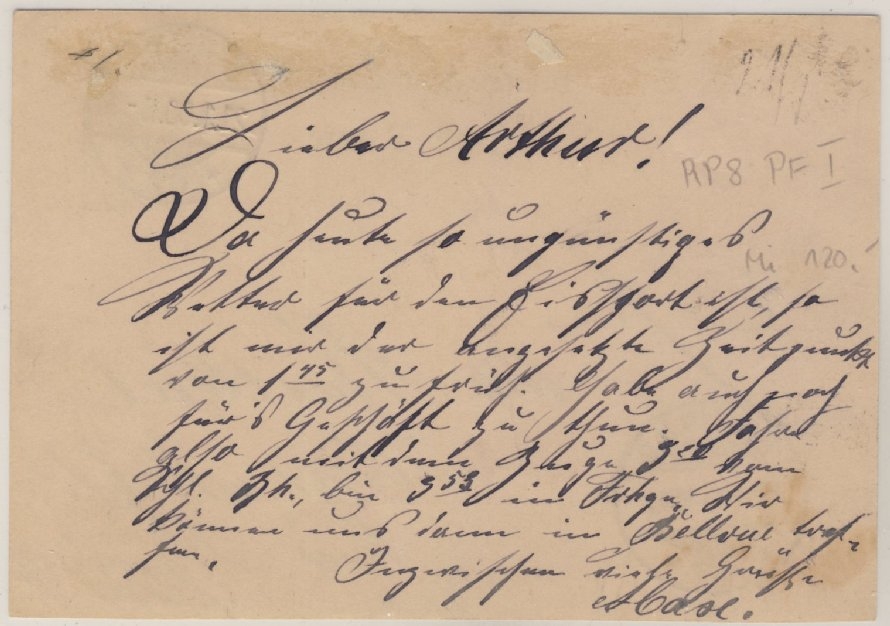 21/1
Lieber Arthur!
RP8 PF I
Da heute so ungünstiges
Mi 120.-
Wetter für den Eissport ist, so
ist mir der angesetzte Zeitpunkt
von 1 45 zu früh. Habe auch noch
für's Geschäft zu thun. Fahre
also mit dem Zuge vom
Bh., bin 3 53 in Wir
können uns dann in Bellvue tref-
fen.
Inzwischen viele Grüße
Max.